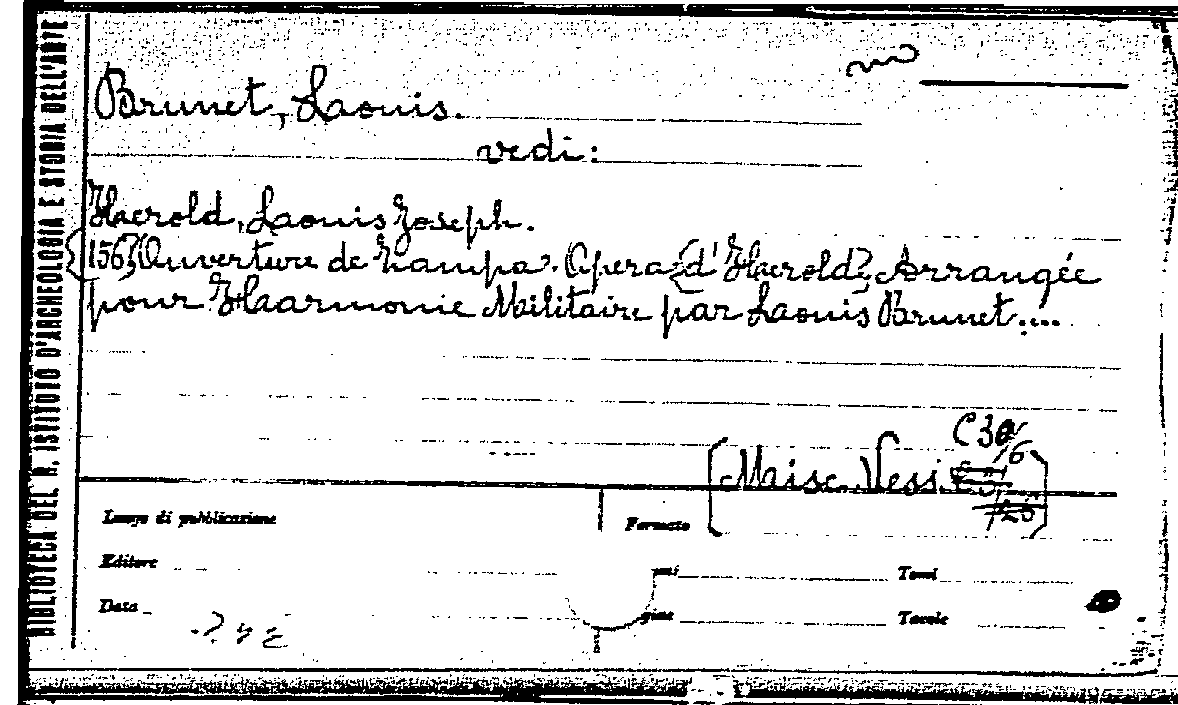 BIBLIOTECA DEL R. ISTITUTO D'ARCHEOLOGIA E STORIA DELL'ARTE
Brunet, Laouis.
vedi:
Haerold, Laouis Joseph.
{156}Ouverture de Zampa. Opera {d'Haerold} Arrangée
pour Haarmonie Militaire par Laouis Brunet....
C 30/6
Misc. Vess.
Luogo di pubblicazione
Formato
Editore
Tomi
Data
Tavole